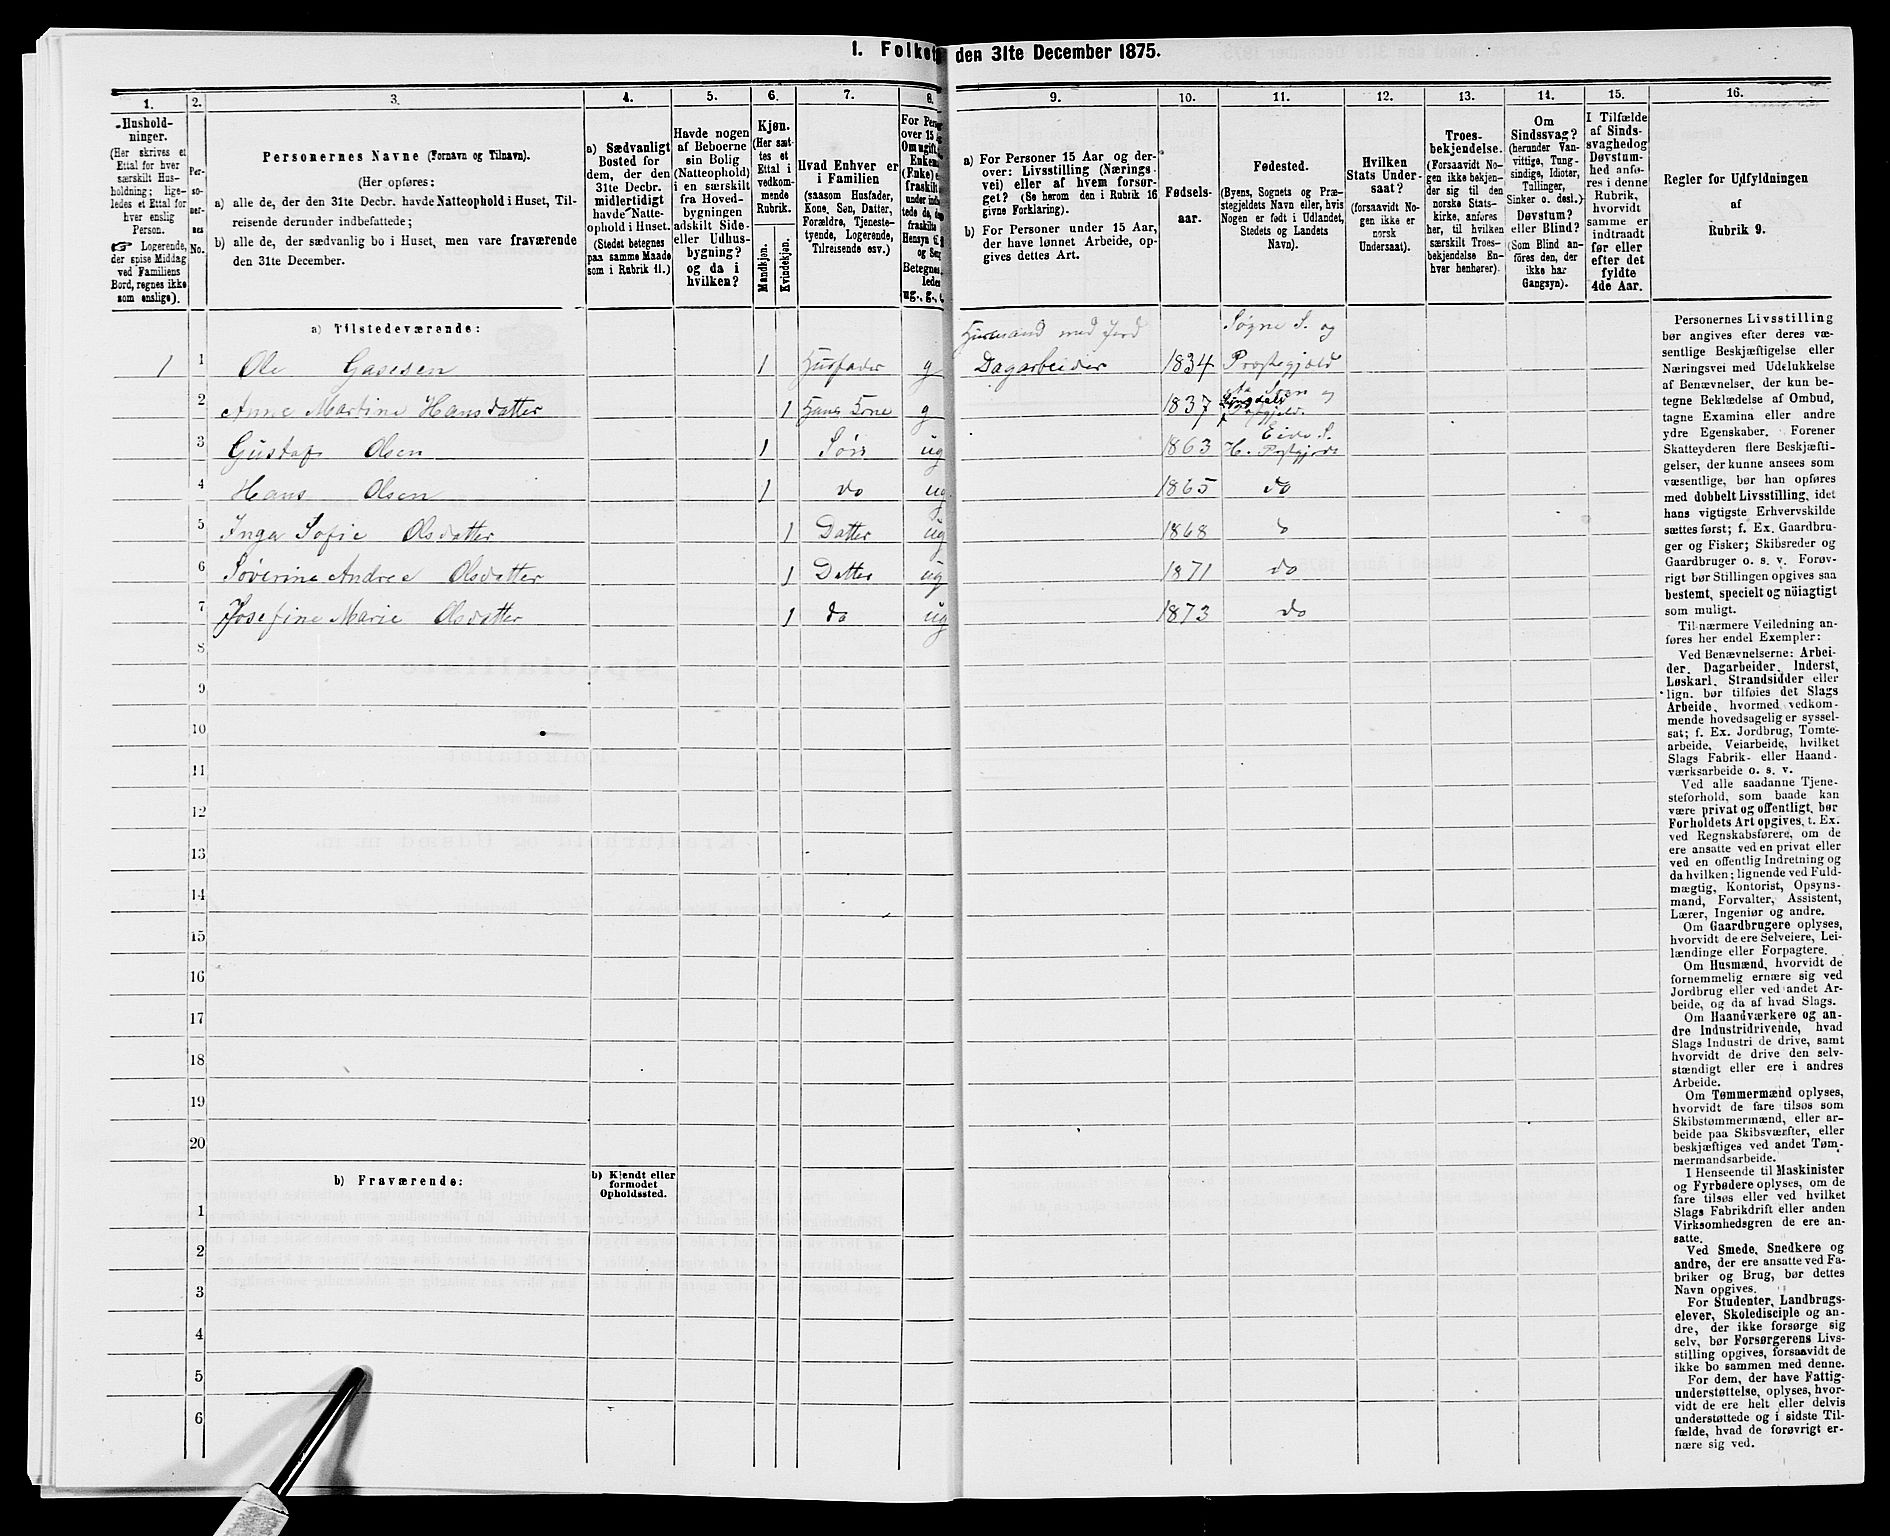 1. Folket den 31te December 1875.
1. 2. 3. 4. 5. 6. 7. 8. 9. 10. 11. 12. 13. 14. 15. 16.
Hushold-
ninger.
(Her skrives et
Ettal for hver
særskilt Hus-
holdning; lige-
ledes et Ettal for
hver enslig
Person.
☞ Logerende,
der spise Middag
ved Familiens
Bord, regnes ikke
som enslige).
Per-
so-
ner-
nes
No.
Personernes Navne (Fornavn og Tilnavn).
(Her opføres:
a) alle de, der den 31te Decbr. havde Natteophold i Huset, Til-
reisende derunder indbefattede;
b) alle de, der sædvanlig bo i Huset, men vare fraværende
den 31te December.
a) Sædvanligt
Bosted for
dem, der den
31te Decbr.
midlertidigt
havde Natte-
ophold i Huset.
(Stedet betegnes
paa samme Maade
som i Rubrik 11.)
Havde nogen
af Beboerne
sin Bolig
(Natteophold)
i en særskilt
fra Hoved-
bygningen
adskilt Side-
eller Udhus-
bygning?
og da i
hvilken?
Kjøn.
(Her sæt-
tes et
Ettal i
vedkom-
mende
Rubrik.)
Mandkjøn.
Kvindekjøn.
Hvad Enhver er
i Familien
(saasom Husfader,
Kone, Søn, Datter,
Forældre, Tjeneste-
tyende, Logerende,
Tilreisende osv.)
For Perso
over 15 A
Om ugift,
Enkem
(Enke) e
fraskilt
under indb
tede de
fraskilte
Hensyn
og
Betegnes
ledes
ug., g., e
a) For Personer 15 Aar og der-
over: Livsstilling (Nærings-
vei) eller af hvem forsør-
get? (Se herom den i Rubrik 16
givne Forklaring).
b) For Personer under 15 Aar,
der have lønnet Arbeide, op-
gives dettes Art.
Fødsels-
aar.
Fødested.
(Byens, Sognets og Præ-
stegjeldets Navn eller, hvis
Nogen er født i Udlandet,
Stedets og Landets
Navn).
Hvilken
Stats Under-
saat?
(forsaavidt No-
gen ikke er
norsk
Undersaat).
Troes-
bekjendelse.
(Forsaavidt No-
gen ikke bekjen-
der sig til den
norske Stats-
kirke, anføres
her, til hvilken
særskilt Troes-
bekjendelse En-
hver henhører).
Om
Sindssvag?
(herunder Van-
vittige, Tung-
sindige, Idioter,
Tullinger,
Sinker o. desl.)
Døvstum?
eller Blind?
(Som Blind an-
føres den, der
ikke har
Gangsyn).
I Tilfælde
af Sinds-
svaghed og
Døvstum-
hed anfø-
res i denne
Rubrik,
hvorvidt
samme er
indtraadt
før eller
efter det
fyldte
4de Aar.
Regler for Udfyldningen
af
Rubrik 9.
a) Tilstedeværende: Husmand med Jord Søgne S. og
1 1 Ole Gasesen 1 Husfader g Dagarbeider 1834 Præstegjæld
2 Anne Martine Hansdatter 1 Hans Kone g 1837
3 Gustaf Olsen 1 Søn ug 1863 Eide S.
4 Hans Olsen 1 do ug 1865 do
5 Inga Sofie Olsdatter 1 Datter ug 1868 do
6 Søverine Andrea Olsdatter 1 Datter ug 1871 do
7 Josefine Marie Olsdatter 1 do ug 1873 do
8
9
10
11
12
13
14
15
16
17
18
19
20
b) Fraværende: b) Kjendt eller
formodet
Opholdssted.
1
2
3
4
5
6
Personernes Livsstilling
bør angives efter deres væ-
sentlige Beskjæftigelse eller
Næringsvei med Udelukkelse
af Benævnelser, der kun be-
tegne Beklædelse af Ombud,
tagne Examina eller andre
ydre Egenskaber. Forener
Skatteyderen flere Beskjæfti-
gelser, der kunne ansees som
væsentlige, bør han opføres
med dobbelt Livsstilling, idet
hans vigtigste Erhvervskilde
sættes først; f. Ex. Gaardbru-
ger og Fisker; Skibsreder og
Gaardbruger o. s. v. Forøv-
rigt bør Stillingen opgives saa
bestemt, specielt og nöiagtigt
som muligt.
Til nærmere Veiledning an-
føres her endel Exempler:
Ved Benævnelserne: Arbei-
der, Dagarbeider, Inderst,
Løskarl, Strandsidder eller
lign. bør tilføies det Slags
Arbeide, hvormed vedkom-
mende hovedsagelig er syssel-
sat; f. Ex. Jordbrug, Tomte-
arbeide, Veiarbeide, hvilket
Slags Fabrik- eller Haand-
værksarbeide o. s. v.
Ved alle saadanne Tjene-
steforhold, som baade kan
være privat og offentligt, bør
Forholdets Art opgives, t. Ex.
ved Regnskabsførere, om de
ere ansatte ved en privat eller
ved en offentlig Indretning og
da hvilken; lignende ved Fuld-
mægtig, Kontorist, Opsyns-
mand, Forvalter, Assistent,
Lærer, Ingeniør og andre.
Om Gaardbrugere oplyses,
hvorvidt de ere Selveiere, Lei-
lændinge eller Forpagtere.
Om Husmænd, hvorvidt de
fornemmelig ernære sig ved
Jordbrug eller ved andet Ar-
beide, og da af hvad Slags.
Om Haandværkere og an-
dre Industridrivende, hvad
Slags Industri de drive, samt
hvorvidt de drive den selv-
stændigt eller ere i andres
Arbeide.
Om Tømmermænd oplyses,
hvorvidt de fare tilsøs som
Skibstømmermænd, eller ar-
beide paa Skibsværfter, eller
beskjæftiges ved andet Tøm-
mermandsarbeide.
I Henseende til Maskinister
og Fyrbødere oplyses, om de
fare tilsøs eller ved hvilket
Slags Fabrikdrift eller anden
Virksomhedsgren de ere an-
satte.
Ved Smede, Snedkere og
andre, der ere ansatte ved Fa-
briker og Brug, bør dettes
Navn opgives.
For Studenter, Landbrugs-
elever, Skoledisciple og an-
dre, der ikke forsørge sig
selv, bør Forsørgerens Livs-
stilling opgives, forsaavidt de
ikke bo sammen med denne.
For dem, der have Fattig-
understøttelse, oplyses, hvor-
vidt de ere helt eller delvis
understøttede og i sidste Til-
fælde, hvad de forøvrigt er-
nære sig ved.